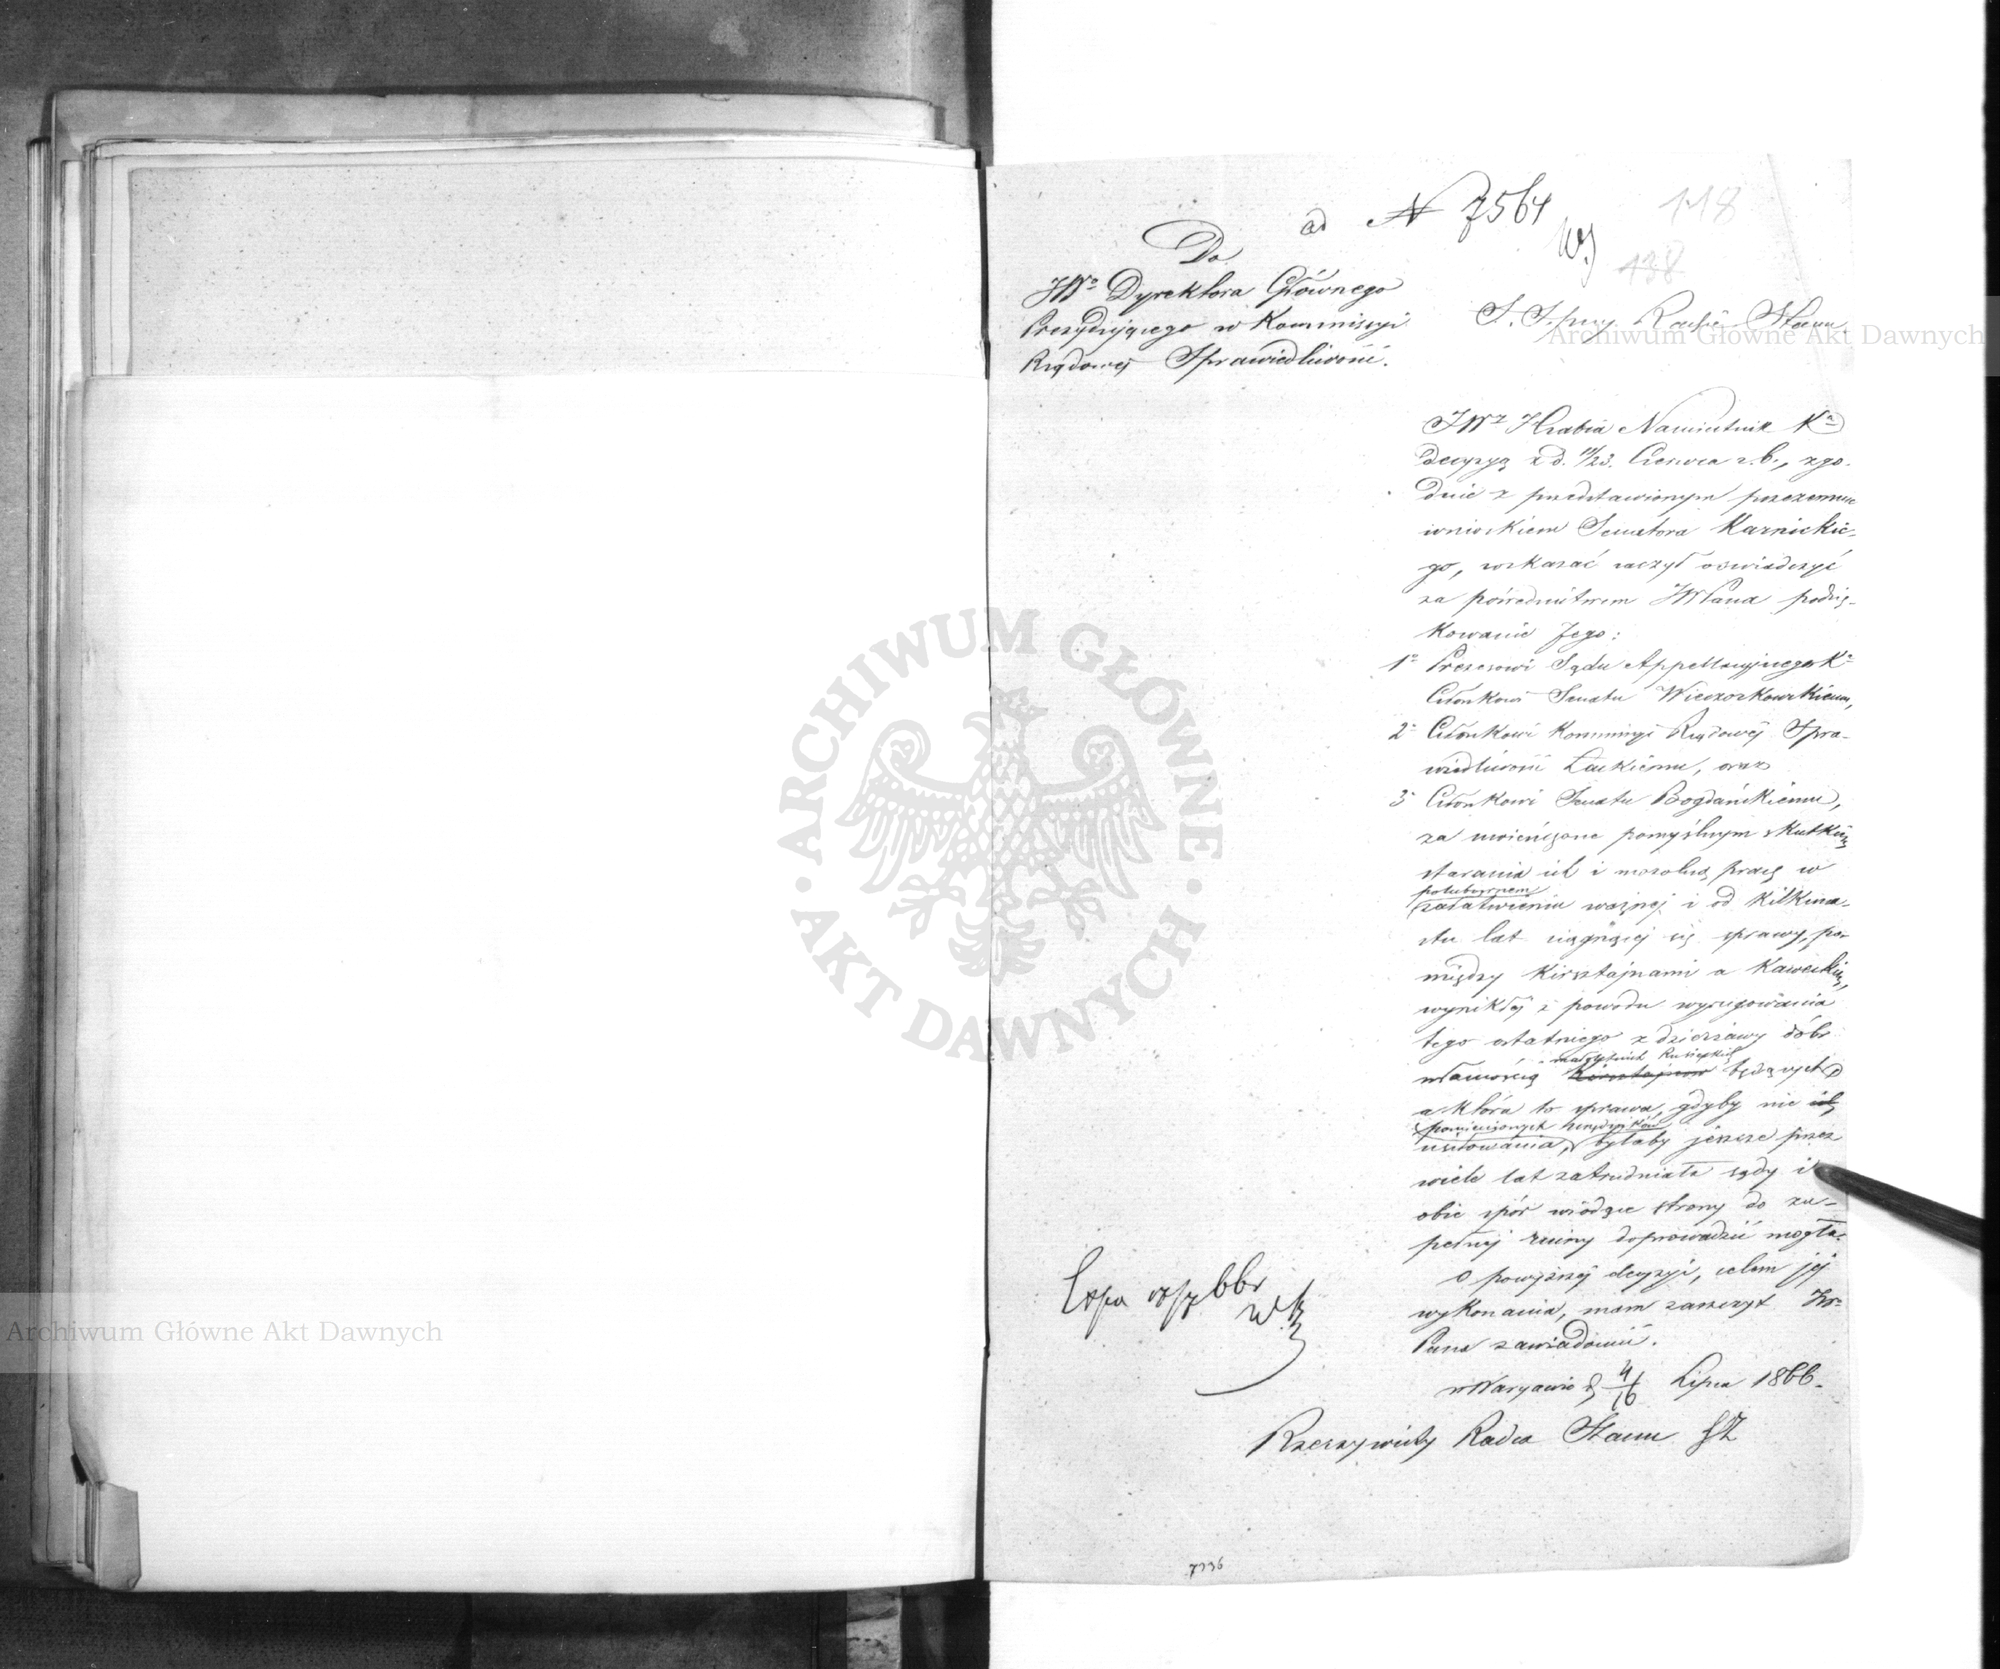 118
ad N 7564
138
Do
JWo Dyrektora Głównego
Prezydującego w Kommissyi
Rządowej Sprawiedliwości.
S. S. przy Radzie Stanu
JWz Hrabia Namiestnik Ko
decyzyą z d. 11/23. Czerwca r.b., zgo-
dnie z przedstawionym przezemnie
wnioskiem Senatora Karnickie-
go, wskazać raczył oświadczyć
za pośrednictwem JWPana podzię-
kowanie Jego:
1o Prezesowi Sądu Appellacyjnego Ko
Członkowi Senatu Wieczorkowskiemu,
2o Członkowi Kommissyi Rządowej Spra-
wiedliwości Łuskiemu, oraz
3o Członkowi Senatu Bogdańskiemu,
za uwieńczone pomyślnym skutkiem
starania ich i mozolną pracę w
polubownem
załatwieniu ważnej i od kilkuna-
stu lat ciągnącej się sprawy, po-
między Kirsztajnami a Kaweckim,
wynikłej z powodu wyrugowania
tego ostatniego z dzierżawy dóbr
małżonków Rusieckich
własnością Kirsztajnow będących
a która to sprawa, gdyby nie ich
pomienionych urzędników
usiłowania, byłaby jeszcze przez
wiele lat zatrudniała sądy i
obie spór wiodące strony do zu-
pełnej ruiny doprowadzić mogła.
O powyższej decyzyi, celem jej
wykonania, mam zaszczyt JW-
Pana zawiadomić.
w Warszawie d 4/16 Lipca 1866.
Rzeczywisty Radca Stanu
7336
Archiwum Główne Akt Dawnych
Archiwum Główne Akt Dawnych
ARCHIWUM GŁÓWNE
AKT DAWNYCH